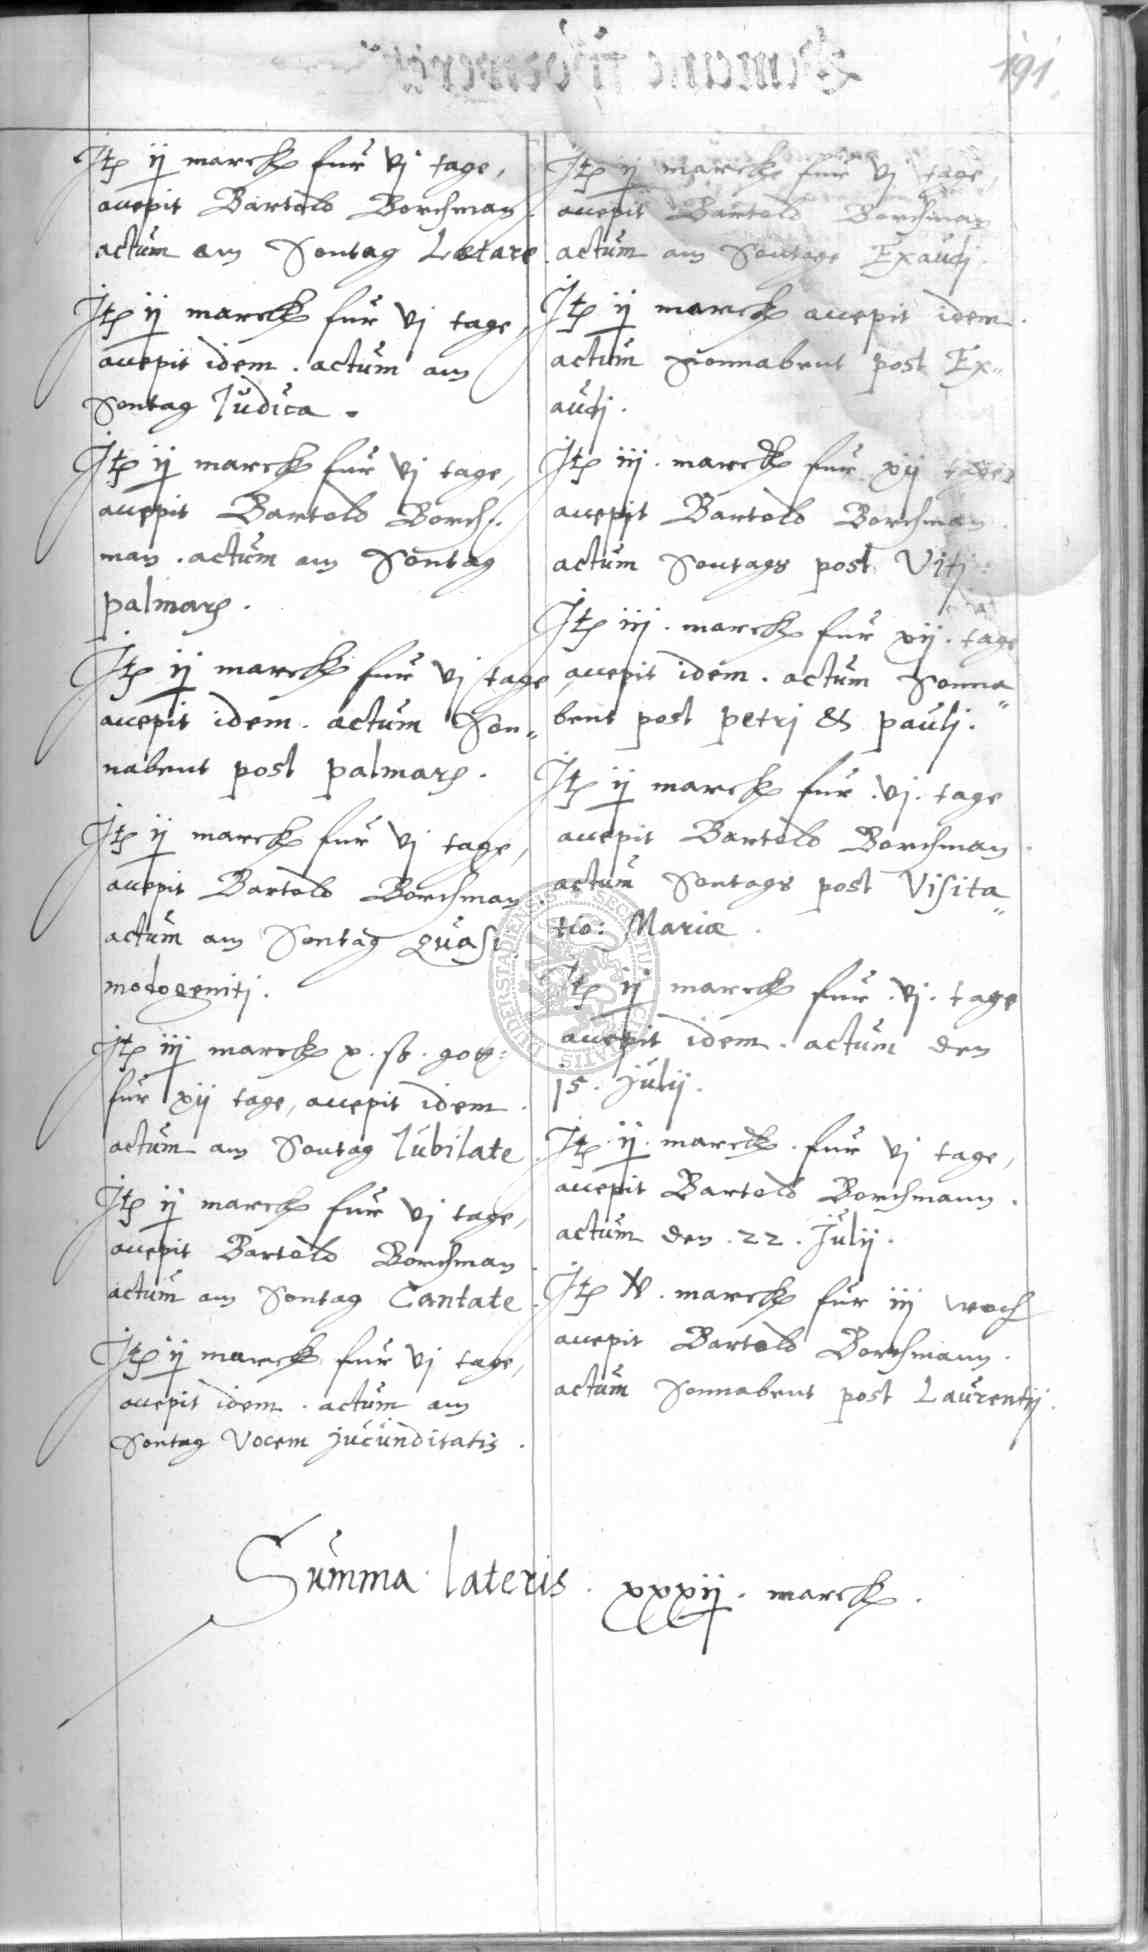 191.
Jt₎ ij marck fur vj tage,
accepit Bartold Borchman.
actum am Sontag Lætare.
Jt₎ ij marck fur vj tage,
accepit idem. actum am
Sontag Judica.
Jt₎ ij marck fur vj tage,
accepit Bartold Borch=
man. actum am Sontag
palmar₎.
Jt₎ ij marck fur vj tage
accepit idem. actum Son„
nabent post palmar₎.
Jt₎ ij marck fur vj tage,
accepit Bartold Borchman.
actum am Sontag Quasi
modogenitj.
Jt₎ iij marck x. ß. gott:
fur xij tage, accepit idem.
actum am Sontag Jubilate.
Jt₎ ij marck fur vj tage,
accepit Bartold Borchman.
actum am Sontag Cantate.
Jt₎ ij marck fur vj tage,
accepit idem. actum am
Sontag Vocem jucunditatis.
Jt₎ ij marck fur vj tage,
accepit Bartold Borchman
actum am Sontage Exaudj.
Jt₎ ij marck accepit idem.
actum Sonnabent post Ex„
audj.
Jt₎ iij. marck fur xij tage
accepit Bartold Borchman.
actum Sontags post Vitj
Jt₎ iij. marck fur xij. tage
accepit idem. actum Sonna„
bent post petrj & paulj.
Jt₎ ij marck fur .vj. tage
accepit Bartold Borchman.
actum Sontags post Visita„
tio: Mariæ.
Jt₎ ij marck fur .vj. tage
accepit idem. actum den
15. Julij.
Jt₎ .ij. marck. fur vj tage,
accepit Bartold Borchmann.
actum den .22. Julij.
Jt₎ . marck fur iij woch
accepit Bartold Borchmann.
actum Sonnabent post Laurentij.
Summa lateris. xxxij. marck.